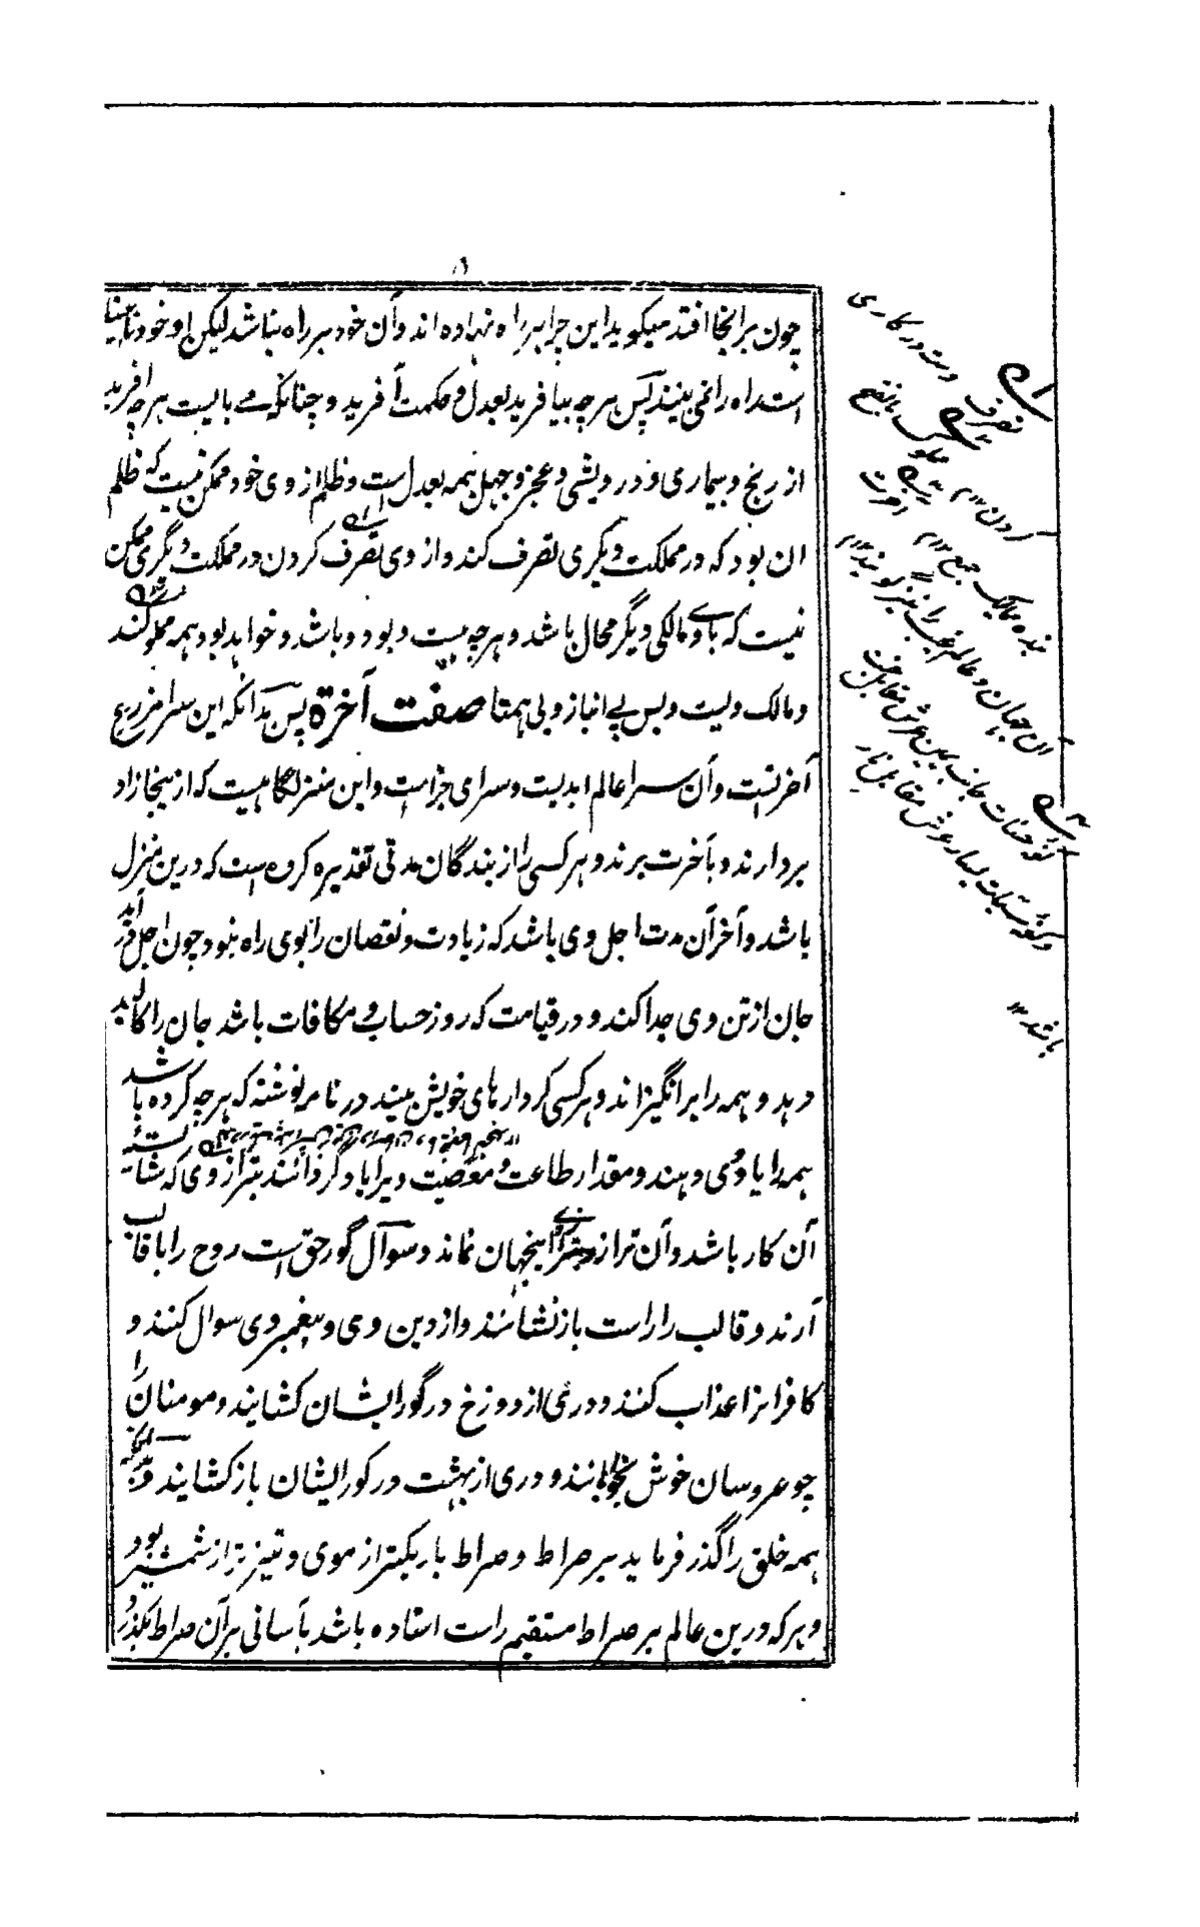 ۵
چون بر آنجا افتد میگوید این چرا بر راه نهاده اند و آن خود بر راه نباشد لیکن او خود نابینا
است راه را نمی بیند پس هرچه بیافرید بعدل و حکمت آفرید و چنانکه می بایست هرچه آفرید
از رنج و بیماری و درویشی و عجز و جهل همه بعدل است و ظلم از وی خود ممکن نیست که ظلم
ان بود که در مملکت دیگری تصرف کند و از وی تصرف کردن در مملکت دیگری ممکن
نیست که باوے مالکی دیگر محال باشد و هرچه هست و بود و باشد و خواهد بود همه مملوکند
و مالک ویست و بس بے انباز و بی همتا صفت آخرة پس بدانکه این سرا مزرع
آخرتست و آن سرا عالم ابدیت و سرای جزاست و این منزلگاهیست که ازینجا زاد
بردارند و بآخرت برند و هر کسی را از بندگان مدتی تقدیر کرده است که درین منزل
باشد و آخر آن مدت اجل وی باشد که زیادت و نقصان را بوی راه نبود چون اجل در آید
جان از تن وی جدا کند و در قیامت که روز حساب و مکافات باشد جان را کالبد
دهد و همه را برانگیزاند و هر کسی کردارهای خویش بیند در نامه نوشته که هرچه کرده باشد
همه را یاد وی دهند و مقدار طاعت و معصیت ویرا یاد گردانند بترازوی که شائسته
آن کار باشد و آن ترازو بترازوے اینجهان نماند و سوآل گور حق است روح را با قالب
آرند و قالب را راست باز نشانند و از دین وی و پیغمبر وی سوال کنند و
کافرانرا عذاب کنند و دری از دوزخ در گور ایشان کشایند و مومنان را
چو عروسان خوش بخوابانند و دری از بهشت در کور ایشان باز کشایند
همه خلق را گذر فرماید بر صراط و صراط باریکتر از موی و تیزتر از شمشیر بود
و هر که درین عالم بر صراط مستقیم راست استاده باشد بآسانی بر آن صراط بگذرد
تصرف دست در کاری
کردن ۱۲
مملوک بالفتح
بنده ممالیک جمع ۱۲
آخرت
آن جهان و عالم غیب را نیز گویند ۱۲
حسنات جانب یمین عرش مقابل جنت
و کفۂ سیئات یسار عرش مقابل نار
باشد ۱۲